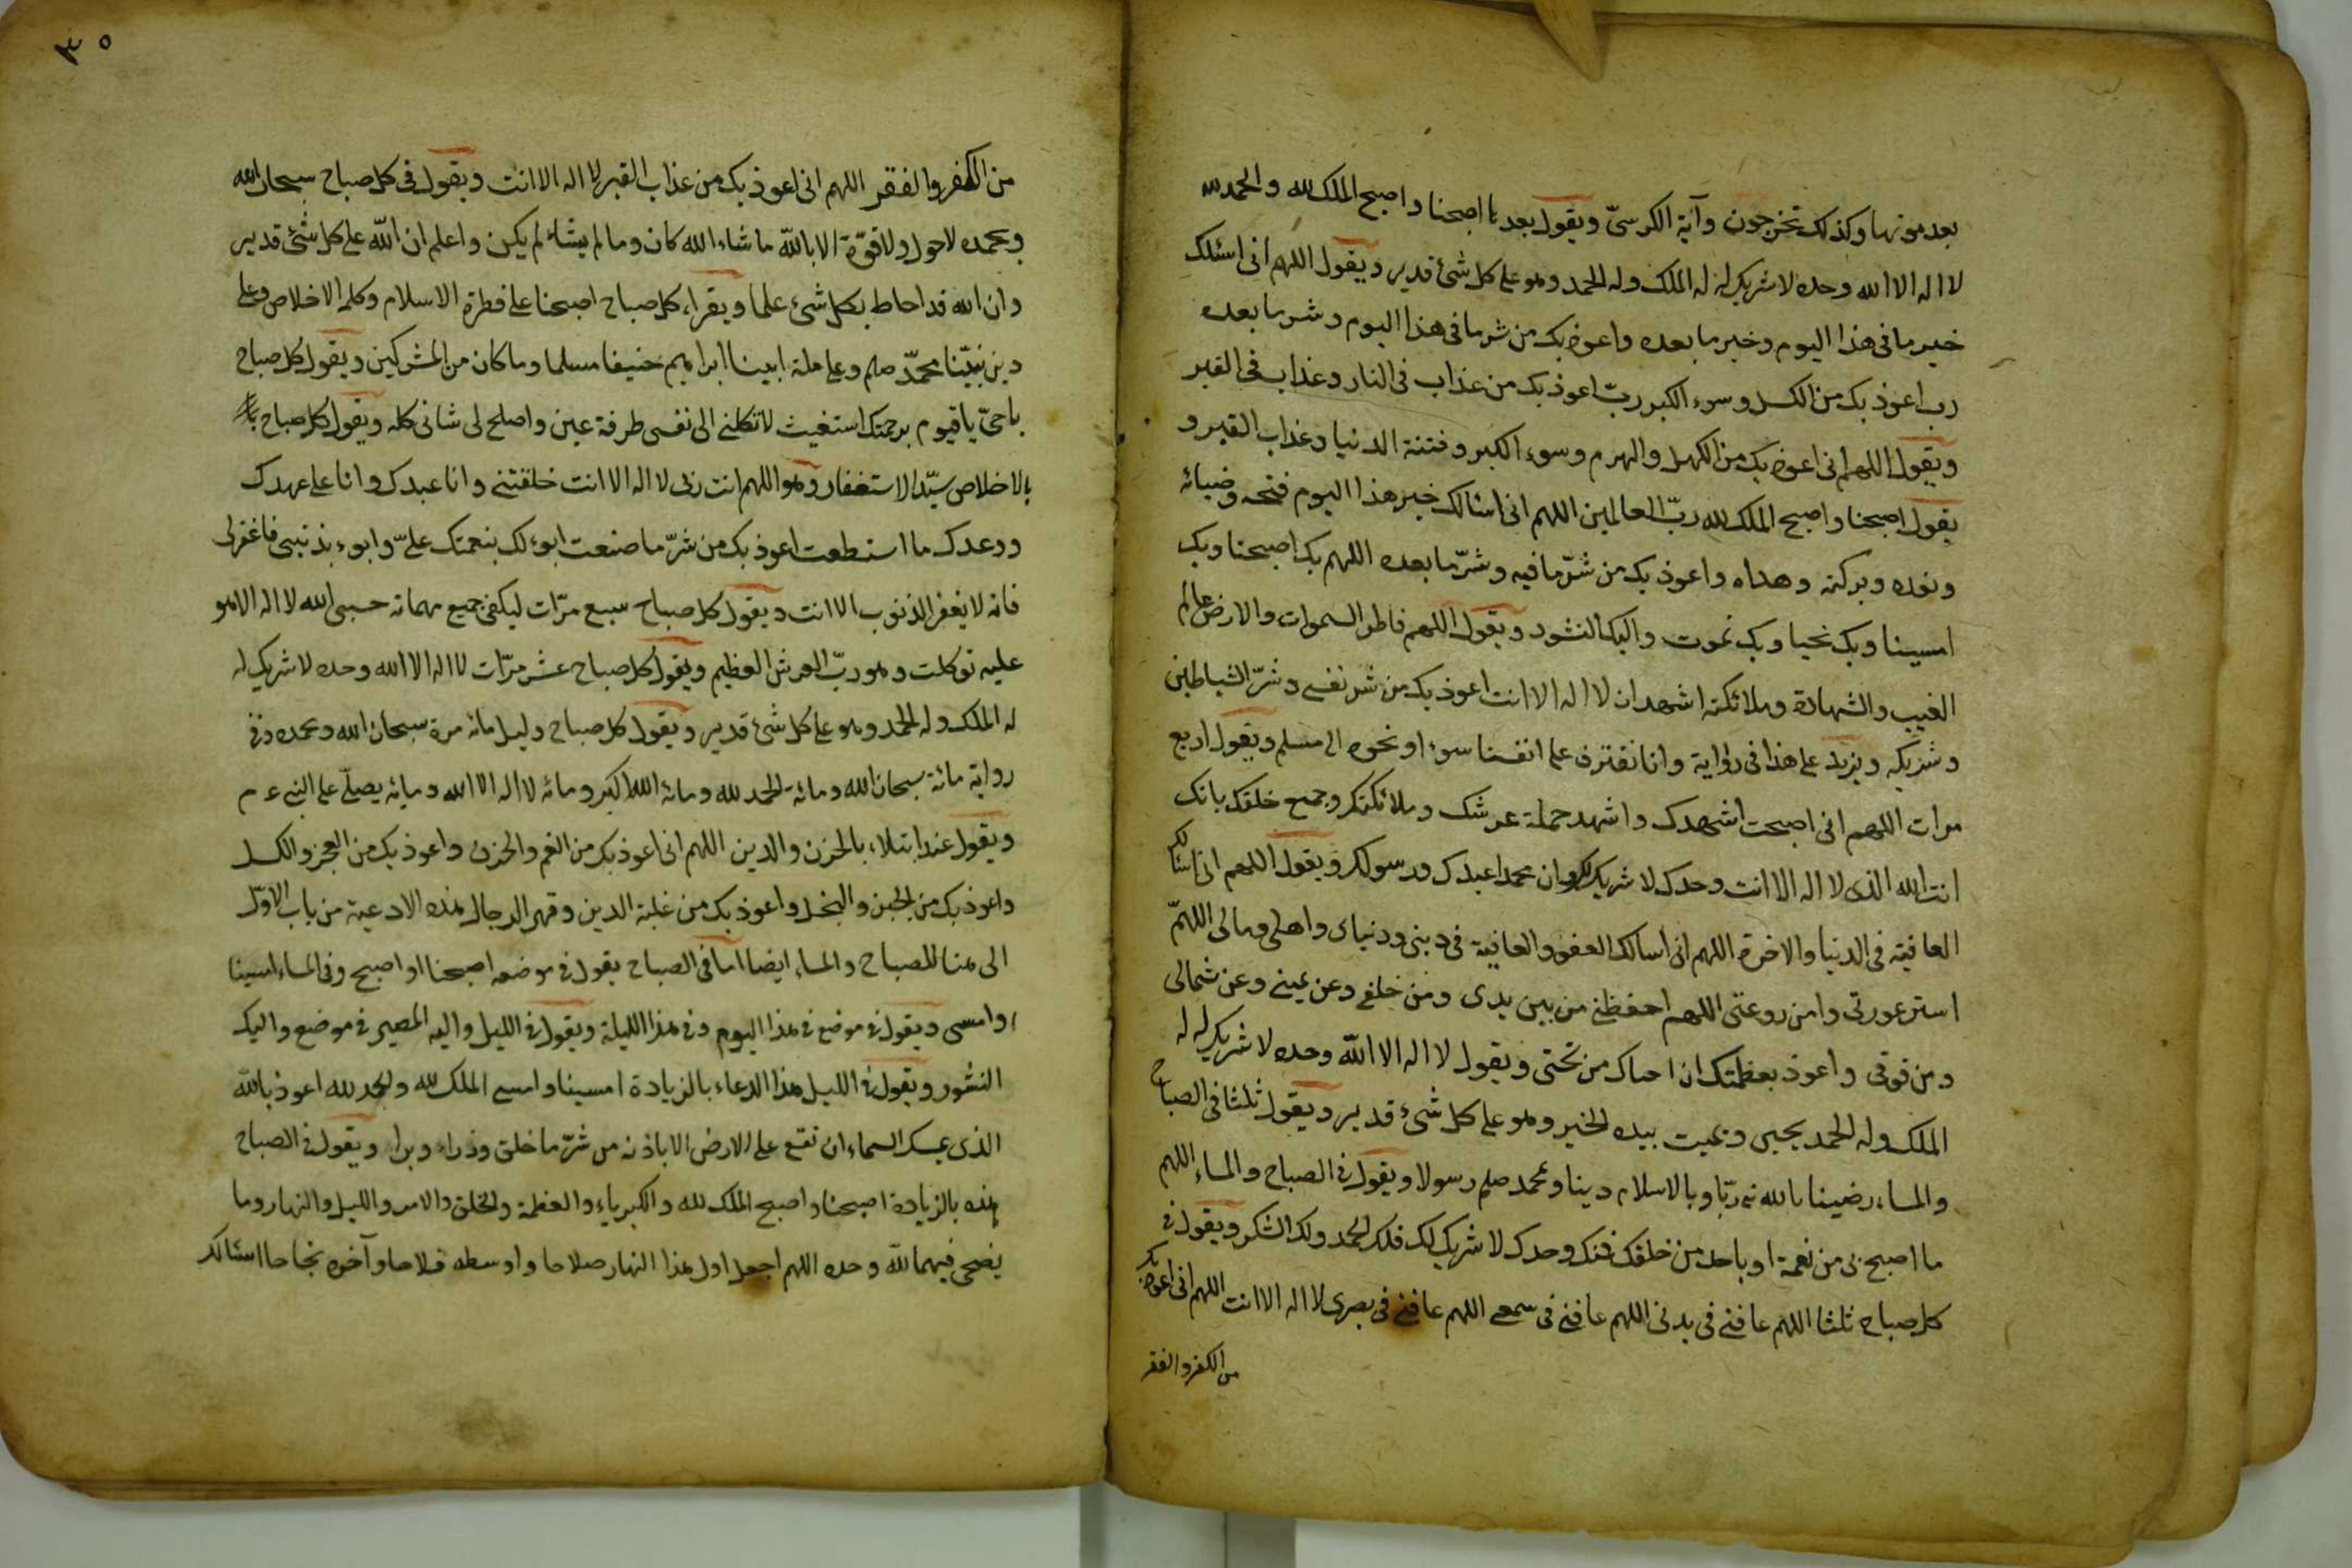 بعد موتها وكذلك تخرجون وآية الكرسىّ ويقول بعدها اصبحنا واصبح الملك لله والحمد لله
لا اله الا الله وحده لا شريك له له الملك وله الحمد وهو على كل شئ قدير ويقول اللهم انى اسئلك
خير ما فى هذا اليوم وخير ما بعده واعوذ بك من شر ما فى هذا اليوم وشر ما بعده
رب اعوذ بك من الكسل وسوء الكبر ربّ اعوذ بك من عذاب فى النار وعذاب فى القبر
ويقول اللهم انى اعوذ بك من الكهل والهرم وسوء الكبر وفتنة الدنيا وعذاب القبر و
يقول اصبحنا واصبح الملك لله ربّ العالمين اللهم انى اسئالك خير هذا اليوم فتحه وضيائه
ونوره وبركته وهداه واعوذ بك من شرّ ما فيه وشرّ ما بعده اللهم بك اصبحنا وبك
امسينا وبك نحيا وبك نموت واليك النشور ويقول اللهم فاطر السموات والارض عالم
الغيب والشهادة وملائكته اشهد ان لا اله الا انت اعوذ بك من شر نفسى وشرّ الشياطين
وشركه ويزيد على هذا فى رواية وانا نقترف على انفسنا سوءا او نجره الى مسلم ويقول اربع
مرات اللهم انى اصبحت اشهدك واشهد حملة عرشك وملائكتك وجميع خلقك بانك
انت الله الذى لا اله الا انت وحدك لا شريك لك وان محمدا عبدك ورسولك ويقول اللهم انى اسئالك
العافية فى الدنيا والاخرة اللهم انى اسالك العفو والعافية فى دينى ودنياى واهلى ومالى اللهمّ
استر عورتى وامن روعتى اللهم احفظنى من بين يدى ومن خلفى وعن يمينى وعن شمالى
ومن فوقى واعوذ بعظمتك ان احتاك من تحتى ويقول لا اله الا الله وحده لا شريك له له
الملك وله الحمد يحيى ويميت بيده الخير وهو على كل شئ قدير ويقول ثلثا فى الصباح
والمساء رضينا بالله ربّا وبالاسلام دينا وبمحمد صلم رسولا ويقول فى الصباح والمساء اللهم
ما اصبح بى من نعمة او باحد من خلقك فمنك وحدك لا شريك لك فلك الحمد ولك الشكر ويقول فى
كل صباح ثلثا اللهم عافنى فى بدنى اللهم عافنى فى سمعى اللهم عافنى فى بصرى لا اله الا انت اللهم انى اعوذ بك
من الكفر والفقر
٣٥
من الكفر والفقر اللهم انى اعوذ بك من عذاب القبر لا اله الا انت ويقول فى كل صباح سبحان الله
وبحمده لا حول ولا قوّة الا بالله ما شاء الله كان وما لم يشاء لم يكن واعلم ان الله على كل شئ قدير
وان الله قد احاط بكل شئ علما ويقراء كل صباح اصبحنا على فطرة الاسلام وكلمة الاخلاص وعلى
دين نبيّنا محمّد صلم وعلى ملة ابينا ابراهيم حنيفا مسلما وما كان من المشركين ويقول كل صباح
يا حىّ يا قيوم برحمتك استغيث لا تكلنى الى نفسى طرفة عين واصلح لى شانى كله ويقول كل صباح
بالاخلاص سيّد الاستغفار وهو اللهم انت ربى لا اله الا انت خلقتنى وانا عبدك وانا على عهدك
ووعدك ما استطعت اعوذ بك من شرّ ما صنعت ابوء لك بنعمتك علىّ وابوء بذنبى فاغفر لى
فانه لا يغفر الذنوب الا انت ويقول كل صباح سبع مرّات ليكفى جميع مهماته حسبى الله لا اله الا هو
عليه توكلت وهو ربّ العرش العظيم ويقول كل صباح عشر مرّات لا اله الا الله وحده لا شريك له
له الملك وله الحمد وهو على كل شئ قدير ويقول كل صباح وليل مائة مرة سبحان الله وبحمده وفى
رواية مائة سبحان الله ومائة الحمد لله ومائة الله اكبر ومائة لا اله الا الله ومائة يصلّى على النبى ع م
ويقول عند ابتلاء بالحزن والدين اللهم انى اعوذ بك من الغم والحزن واعوذ بك من العجز والكسل
واعوذ بك من الجبن والبخل واعوذ بك من غلبة الدين وقهر الرجال هذه الادعية من باب الاوّل
الى هنا للصباح والمساء ايضا اما فى الصباح يقول فى موضعه اصبحنا او اصبح وفى المساء امسينا
وامسى ويقول فى موضع فى هذا اليوم وفى هذا الليلة ويقول فى الليل واليه المصير فى موضع واليك
النشور ويقول فى الليل هذا الدعاء بالزيادة امسينا وامسى الملك لله والحمد لله اعوذ بالله
الذى يمسك السماء ان تقع على الارض الا باذنه من شرّ ما خلق وذراء وبراء ويقول فى الصباح
هذه بالزيادة اصبحنا واصبح الملك لله والكبرياء والعظمة والخلق والامر والليل والنهار وما
يضحى فيهما لله وحده اللهم اجعل اول هذا النهار صلاحا واوسطه فلاحا وآخره نجاحا اسئالك